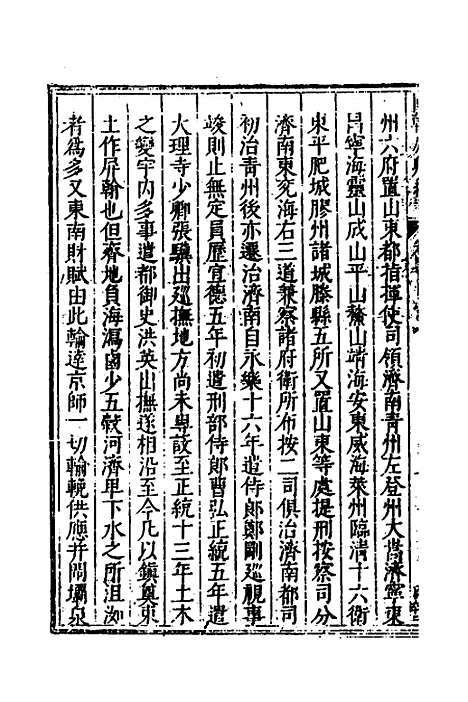 州六府置山東都指揮使司領濟南青州左登州大嵩濟寧東
昌寧海靈山成山平山鰲山靖海安東威海萊州臨清十六衛
東平肥城膠州諸城滕縣五所又置山東等處提刑按察司分
濟南東兗海右三道兼察諸府衛所布按二司俱治濟南都司
初治青州後亦遷治濟南自永樂十六年遣侍郎鄭剛巡視事
峻則止無定員歷宣德五年初遣刑部侍郎曹弘正統五年遣
大理寺少卿張驥出巡撫地方尚未專設至正統十三年土木
之變宇內多事遣都御史洪英山撫遂相沿至今凡以鎮奠東
土作屏翰也但齊地負海潟鹵少五穀河濟甲下水之所沮洳
者為多又東南財賦由此輪達京師一切輸輓供應并閘壩泉